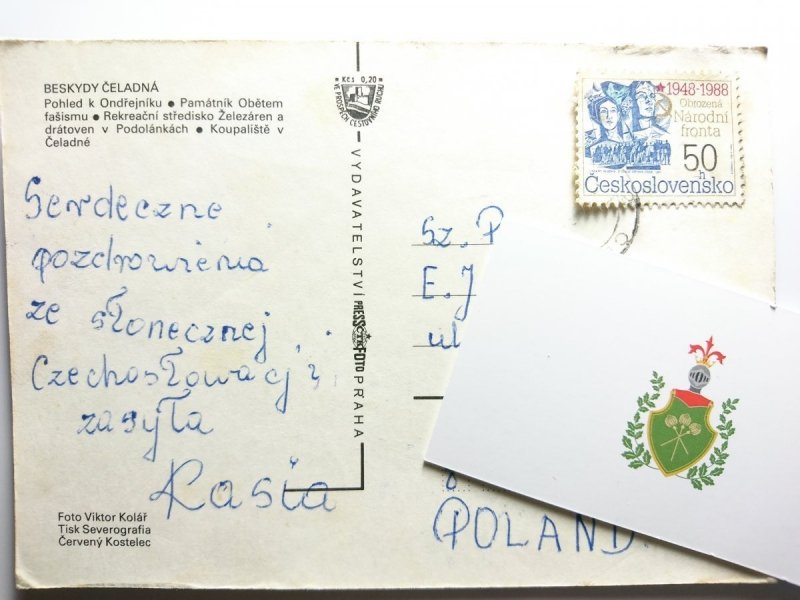 BESKYDY ČELADNÁ
Pohled k Ondřejníku • Památník Obětem
fašismu • Rekreační středisko Železáren a
drátoven v Podolánkách • Koupaliště v
Čeladné
Serdeczne
pozdrowienia
ze słonecznej
Czechosłowacji
zasyła
Kasia
Foto Viktor Kolář
Tisk Severografia
Červený Kostelec
Kčs 0,20
VE PROSPĚCH CESTOVNÍHO RUCHU
VYDAVATELSTVÍ PRESSFOTO PRAHA
ČTK
★1948-1988
Obrozená
Národní
fronta
50h
Československo
Sz. P
E. J
ul
POLAND.